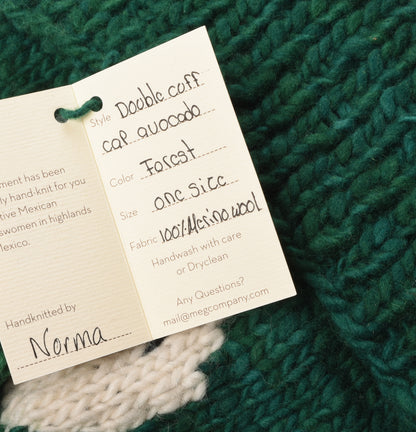 ment has been
ly hand-knit for you
tive Mexican
swomen in highlands
Mexico.
Handknitted by
Norma
Style Double cuff
cap avocado
Color Forest
Size one sice
Fabric 100% Merino wool
Handwash with care
or Dryclean
Any Questions?
mail@megcompany.com